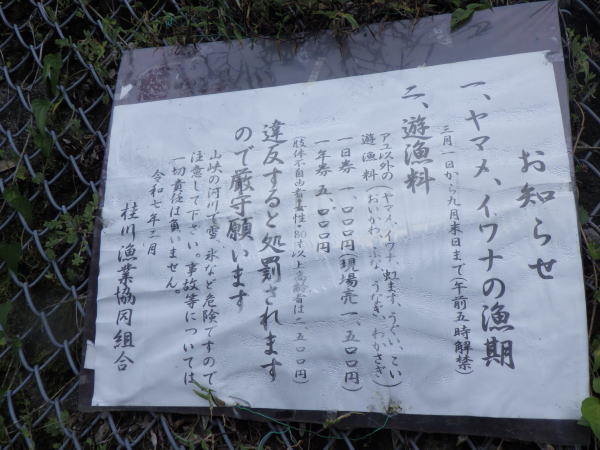 お知らせ
一、ヤマメ、イワナの漁期
三月一日から九月末日まで(午前五時解禁)
二、遊漁料
アユ以外の(ヤマメ、イワナ、虹ます、うぐい、こい
遊漁料(おいかわ、ふな、うなぎ、わかさぎ)
一日券 一、〇〇〇円(現場売一、五〇〇円)
一年券 五、〇〇〇円
(肢体不自由者・女性・80才以上高齢者は二、五〇〇円)
違反すると処罰されます
ので厳守願います
山峡の河川で雪、氷など危険ですので
注意して下さい。事故等については
一切責任は負いません。
令和七年二月
桂川漁業協同組合